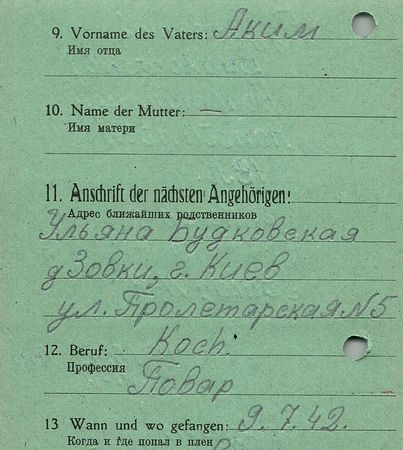 9. Vorname des Vaters: Аким
Имя отца
10. Name der Mutter: —
Имя матери
11. Anschrift der nächsten Angehörigen:
Адрес ближайших родственников
Ульяна Будковская
д Зовки, г. Киев
ул. Пролетарская N 5
12. Beruf: Koch.
Профессия
Повар
13 Wann und wo gefangen: 9. 7. 42.
Когда и где попал в плен